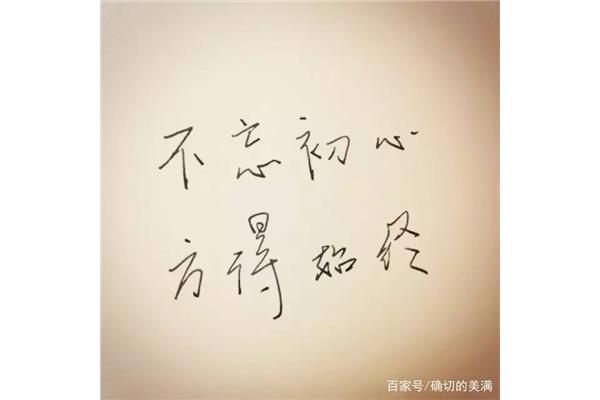 不忘初心
方得始终
百家号/确切的美满